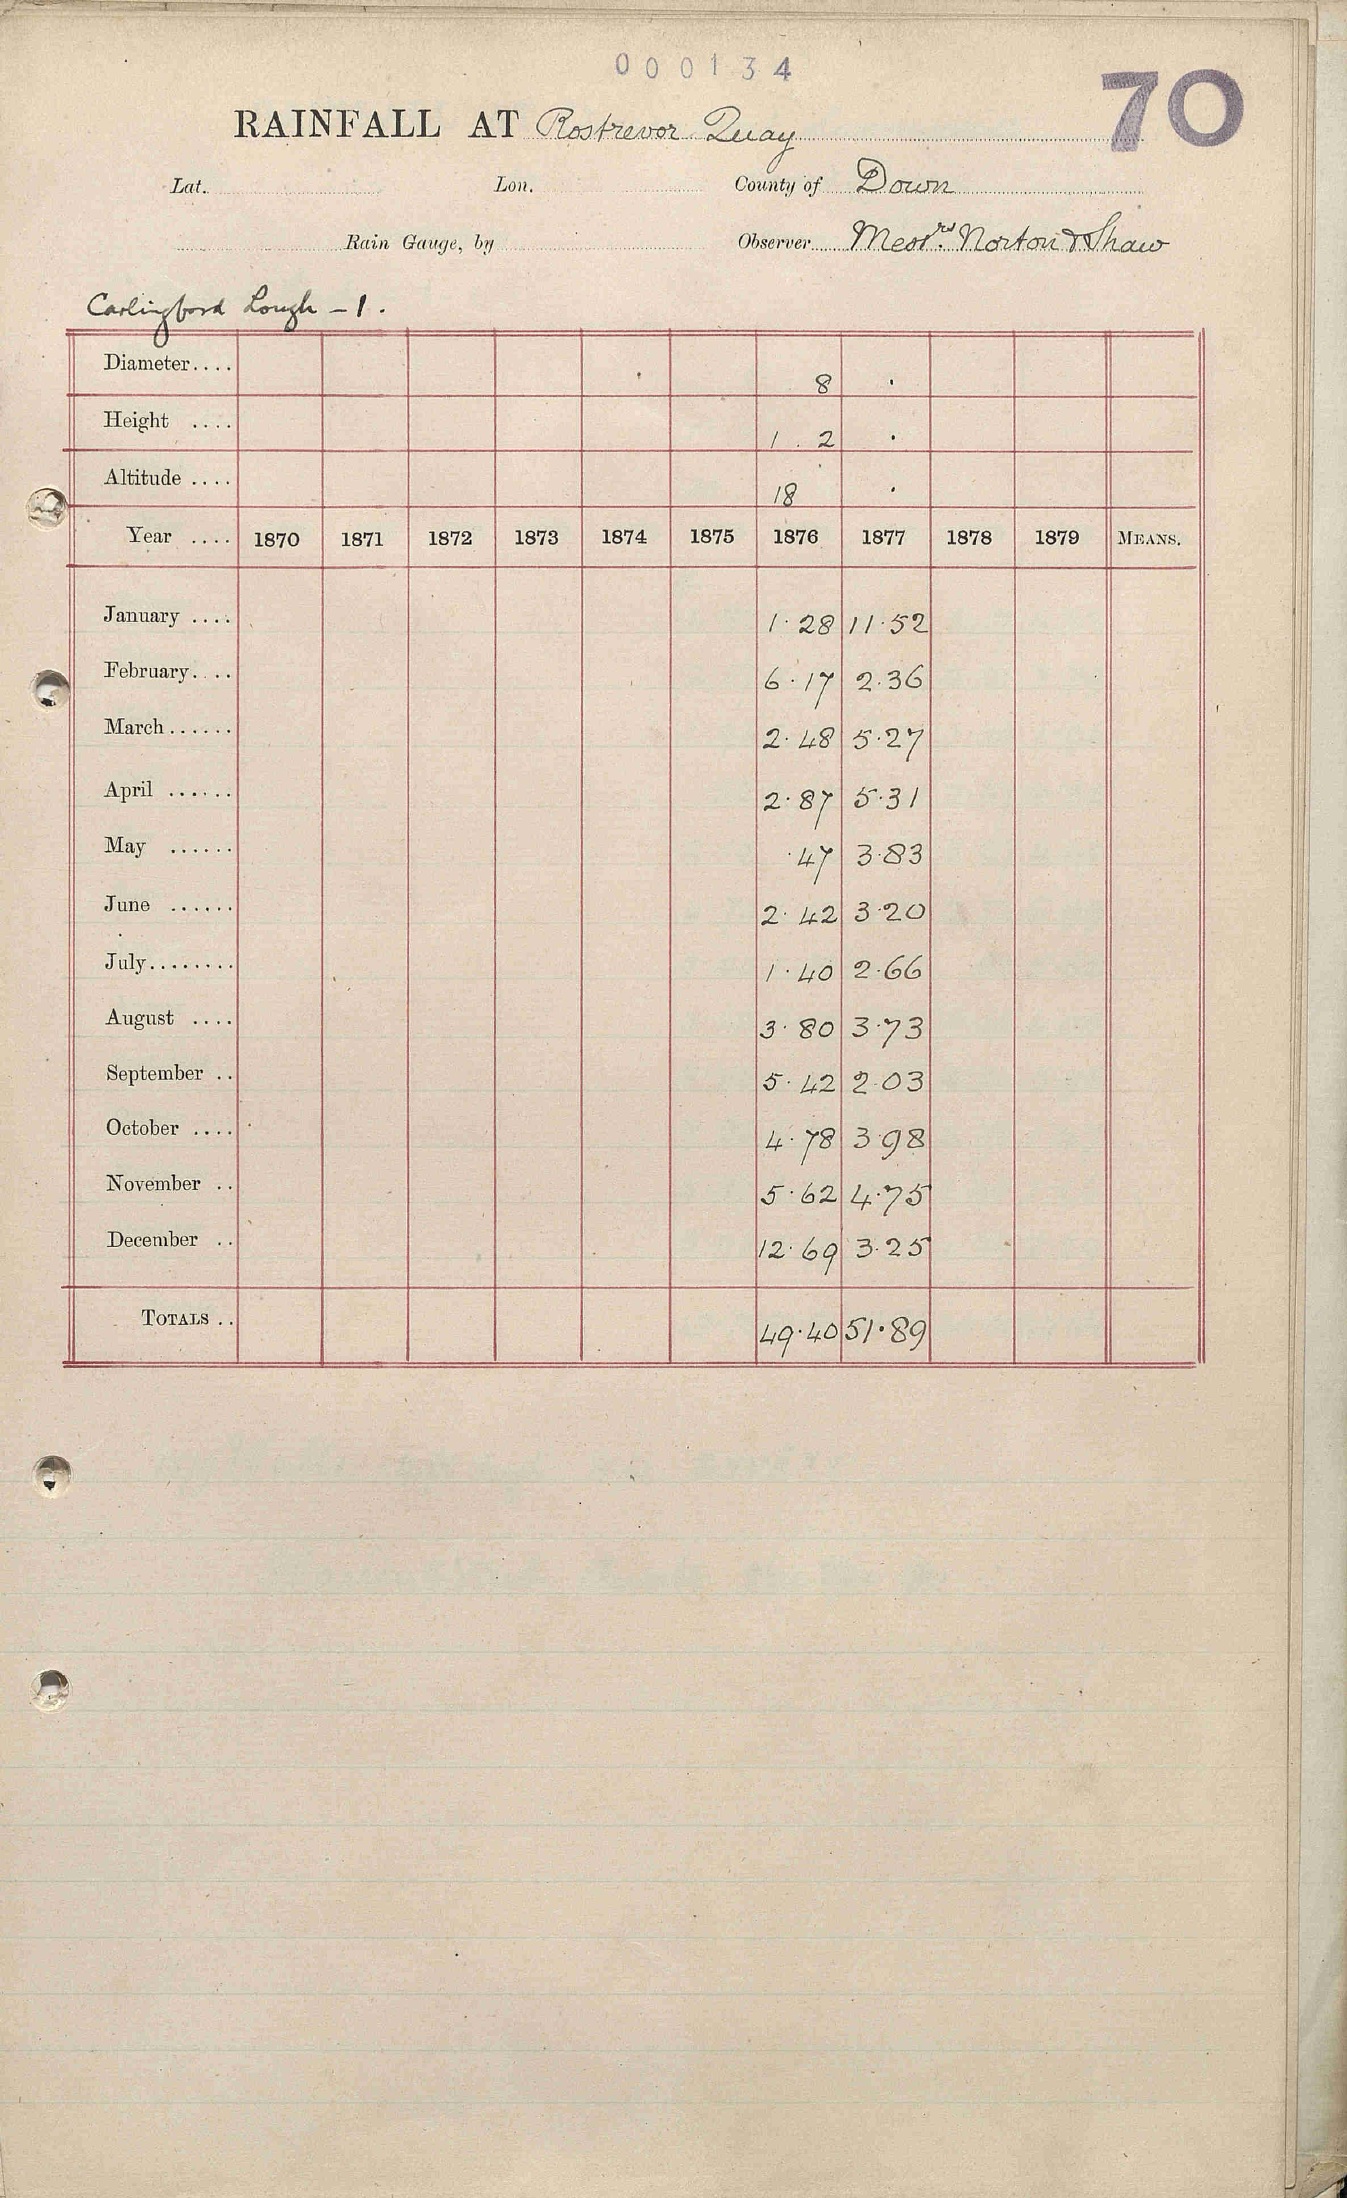 000134
70
RAINFALL AT Rostrevor Quay
Lat. Lon. County of Down
Rain Gauge, by Observer Messrs. Norton & Shaw
Carlingford Lough - 1.
Diameter.... 8 .
Height .... 1 . 2 .
Altitude .... 18 .
Year .... 1870 1871 1872 1873 1874 1875 1876 1877 1878 1879 MEANS.
January .... 1.28 11.52
February.... 6.17 2.36
March...... 2.48 5.27
April ...... 2.87 5.31
May ...... .47 3.83
June ...... 2.42 3.20
July........ 1.40 2.66
August .... 3.80 3.73
September .. 5.42 2.03
October .... 4.78 3.98
November .. 5.62 4.75
December .. 12.69 3.25
TOTALS .. 49.40 51.89